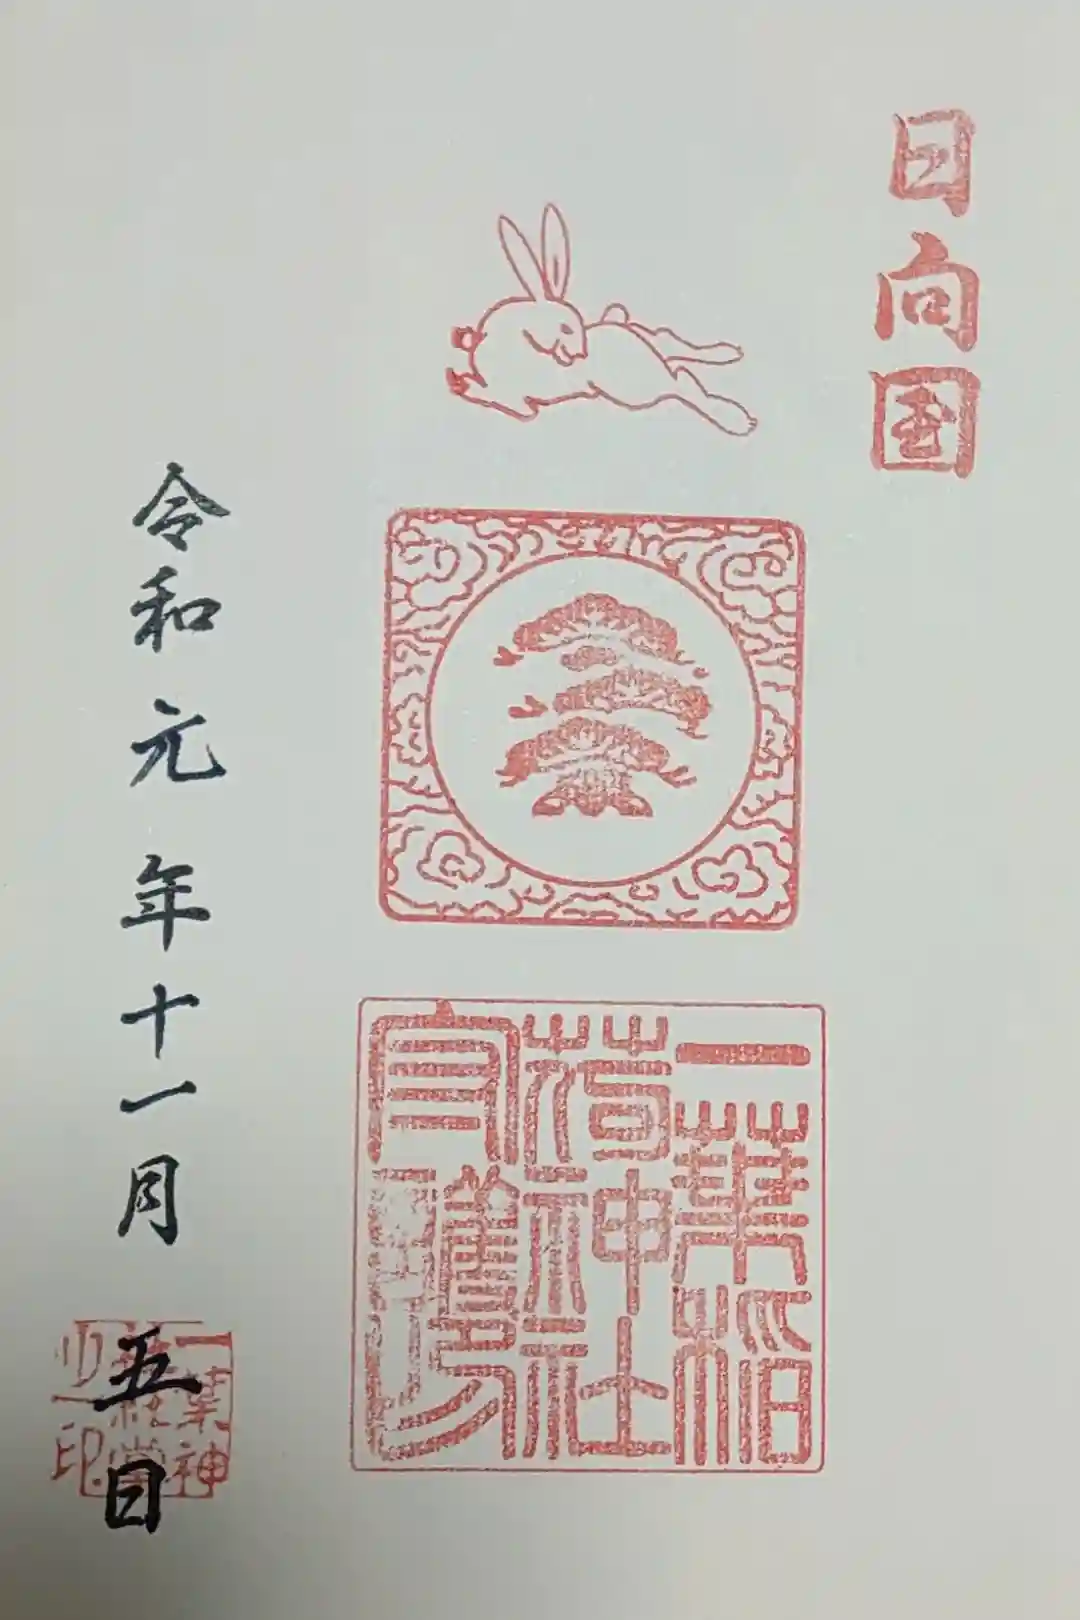 日向国
一葉稲
荷神社
令和元年十一月五日
一葉神
之印